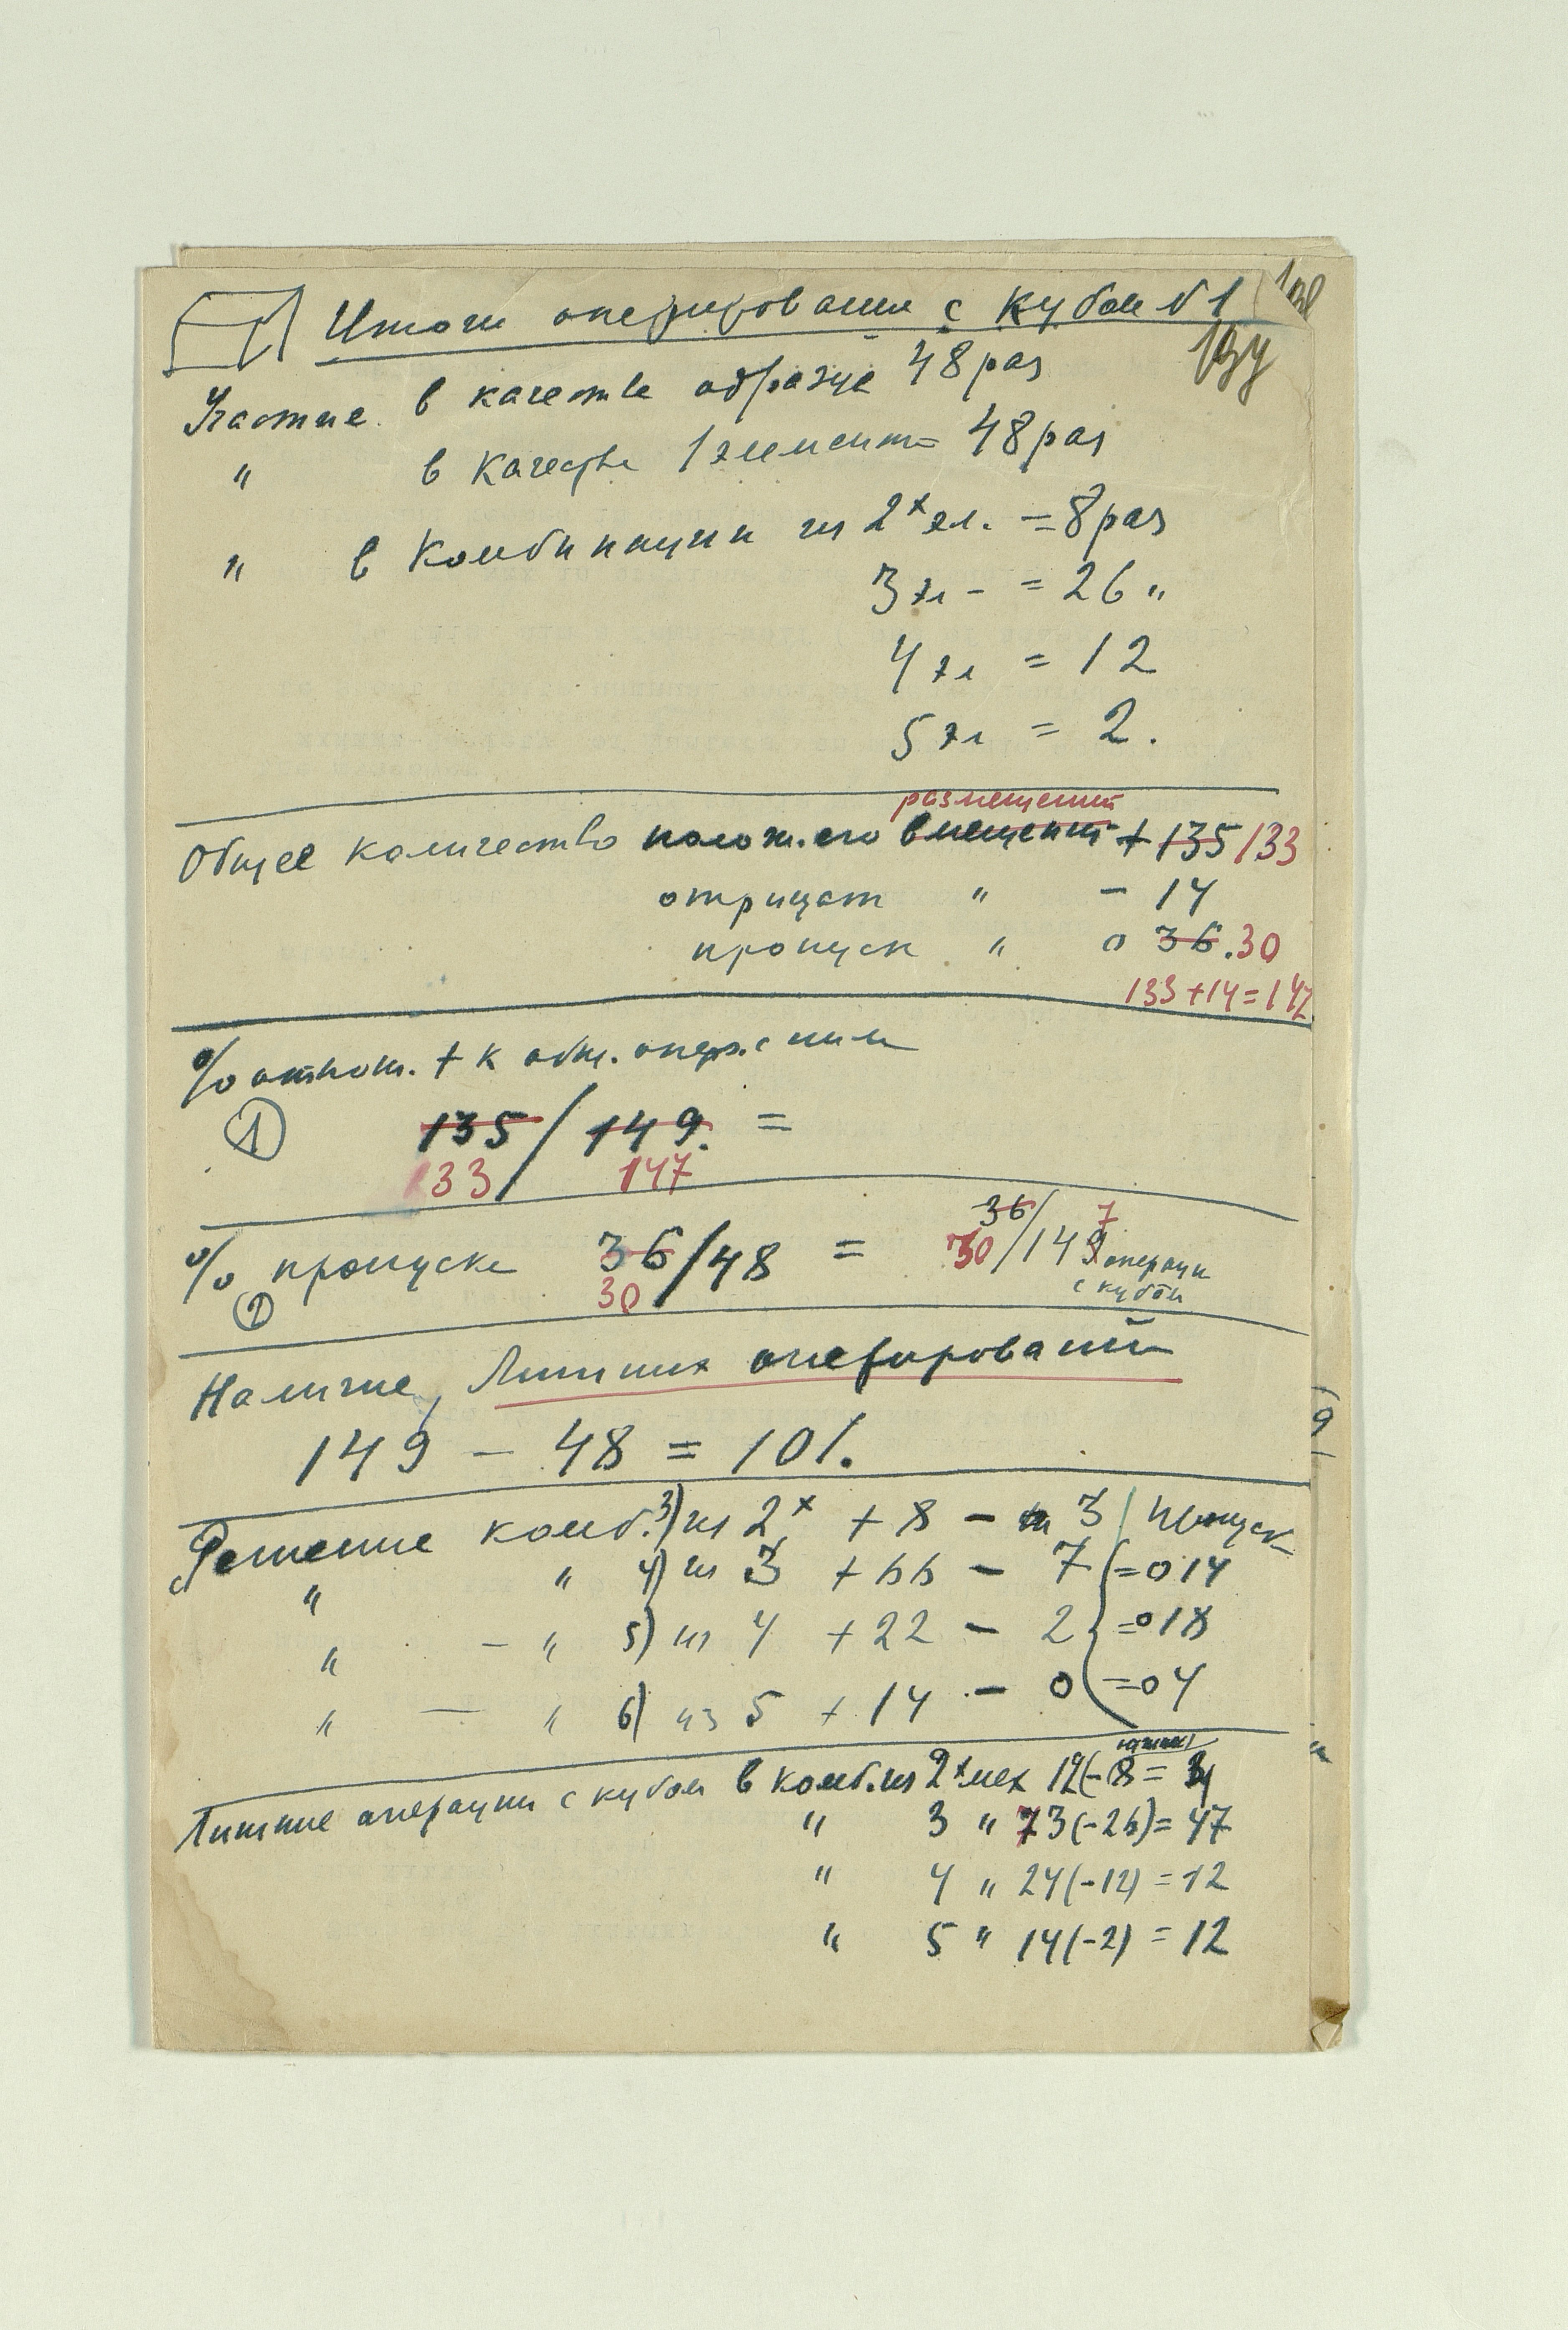 Итоги оперирования с кубом N 1
Участие в качестве образца 48 раз
" в качестве 1 элемента = 48 раз
" в комбинации из 2х эл. = 8 раз
3 эл - = 26 "
4 эл = 12
5 эл = 2.
размещений
Общее количество полож. его вмещений + 135 133
отрицат " - 14
пропуск " 0 36. 30
133 + 14 = 147
% отнош. + к общ. опер. с ним
① 135 / 149. =
133 147
% пропуска 36/48 = 36/149 операции
② 30 30 7 с кубом
Наличие Лишних оперирований
149 - 48 = 101.
Решение комб. 3) из 2х + 8 - 3 пропуск
" " 4) из 3 + 66 - 7 = 0 14
" - " 5) из 4 + 22 - 2 = 0 18
" - " 6) из 5 + 14 - 0 = 0 4
Лишние операции с кубом в комб. из 2х 12(-8 =
" 3 " 73(-26) = 47
" 4 " 24(-12) = 12
" 5 " 14(-2) = 12